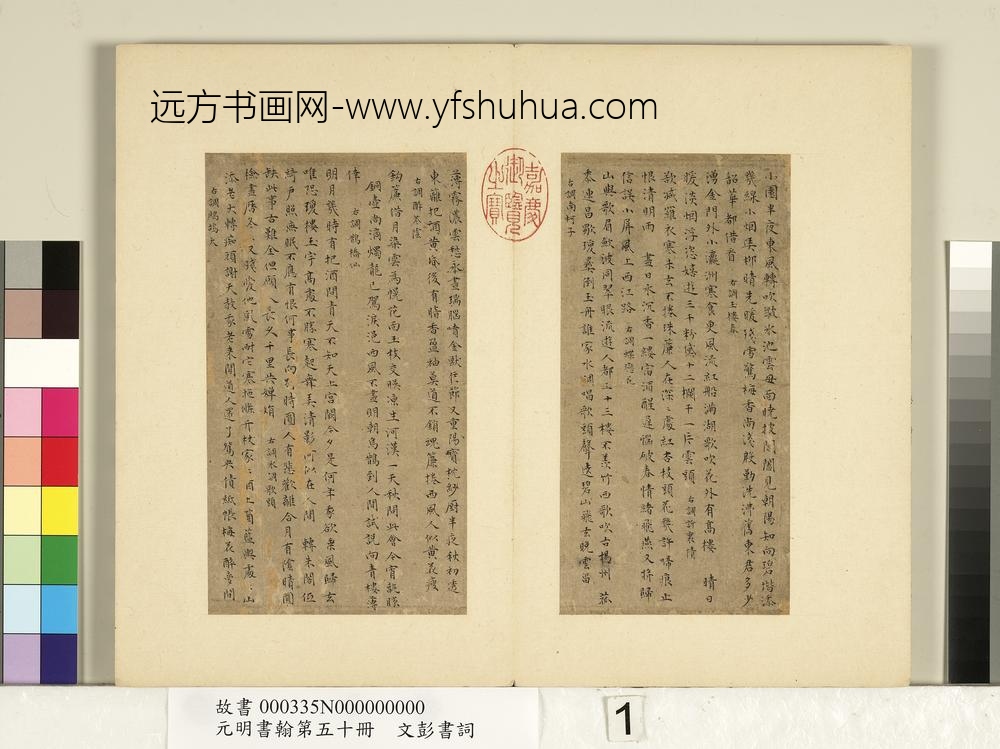 远方书画网-www.yfshuhua.com
小園半夜東風轉吹皺冰池雲母面曉披閶闔見朝陽知向碧堦添
幾線小烟弄柳晴先暖殘雪鴛梅香尚淺殷勤洗拂舊東君多少
韶華都借看 右調玉樓春
湧金門外小瀛洲寒食更風流紅船滿湖歌吹花外有高樓 晴日
暖淡烟浮恣嬉遊三千粉黛十二欄干一片雲頭 右調訴衷情
欲減羅衣寒未去不捲珠簾人在深〻處紅杏枝頭花幾許啼痕止
恨清明雨 盡日水沉香一縷宿酒醒遲惱破春情緒飛燕又將歸
信誤小屏風上西江路 右調蝶戀花
山與歌眉歛波同翠眼流遊人都上十三樓不羨竹西歌吹古揚州 菰
黍連昌歜瓊彝倒玉舟誰家水調唱歌頭聲遶碧山飛去晚雲留
右調南柯子
嘉慶御覽之寶
薄霧濃雲愁永晝瑞腦噴金獸佳節又重陽寶枕紗厨半夜秋初透
東籬把酒黃昏後有暗香盈袖莫道不銷魂簾捲西風人似黃花瘦
右調醉花陰
鈎簾借月染雲為幌花面玉枝交映凉生河漢一天秋問此會今宵誰勝
銅壺尚滴燭龍已駕淚浥西風不盡明朝烏鵲到人間試說向青樓薄
倖 右調鵲橋仙
明月幾時有把酒問青天不知天上宮闕今夕是何年我欲乘風歸去
唯恐瓊樓玉宇高處不勝寒起舞弄清影何似在人間 轉朱閣低
綺戶照無眠不應有恨何事長向別時圓人有悲歡離合月有陰晴圓
缺此事古難全但願人長久千里共嬋娟 右調水調歌頭
檢盡曆冬又殘愛他風雪耐它寒拖條竹杖家〻酒上箇籃輿處〻山
添老大轉痴頑謝天教我老來閒道人還了鴛鴦債紙帳梅花醉夢間
右調鷓鴣天
故書 000335N000000000
元明書翰第五十冊 文彭書詞
1